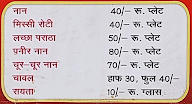 नान 40/- रू. प्लेट
मिस्सी रोटी 40/- रू. प्लेट
लच्छा पराठा 50/- रू. प्लेट
पनीर नान 80/- रू. प्लेट
चूर-चूर नान 70/- रू. प्लेट
चावल हाफ 30, फुल 40/-
रायता 10/- रू. ग्लास